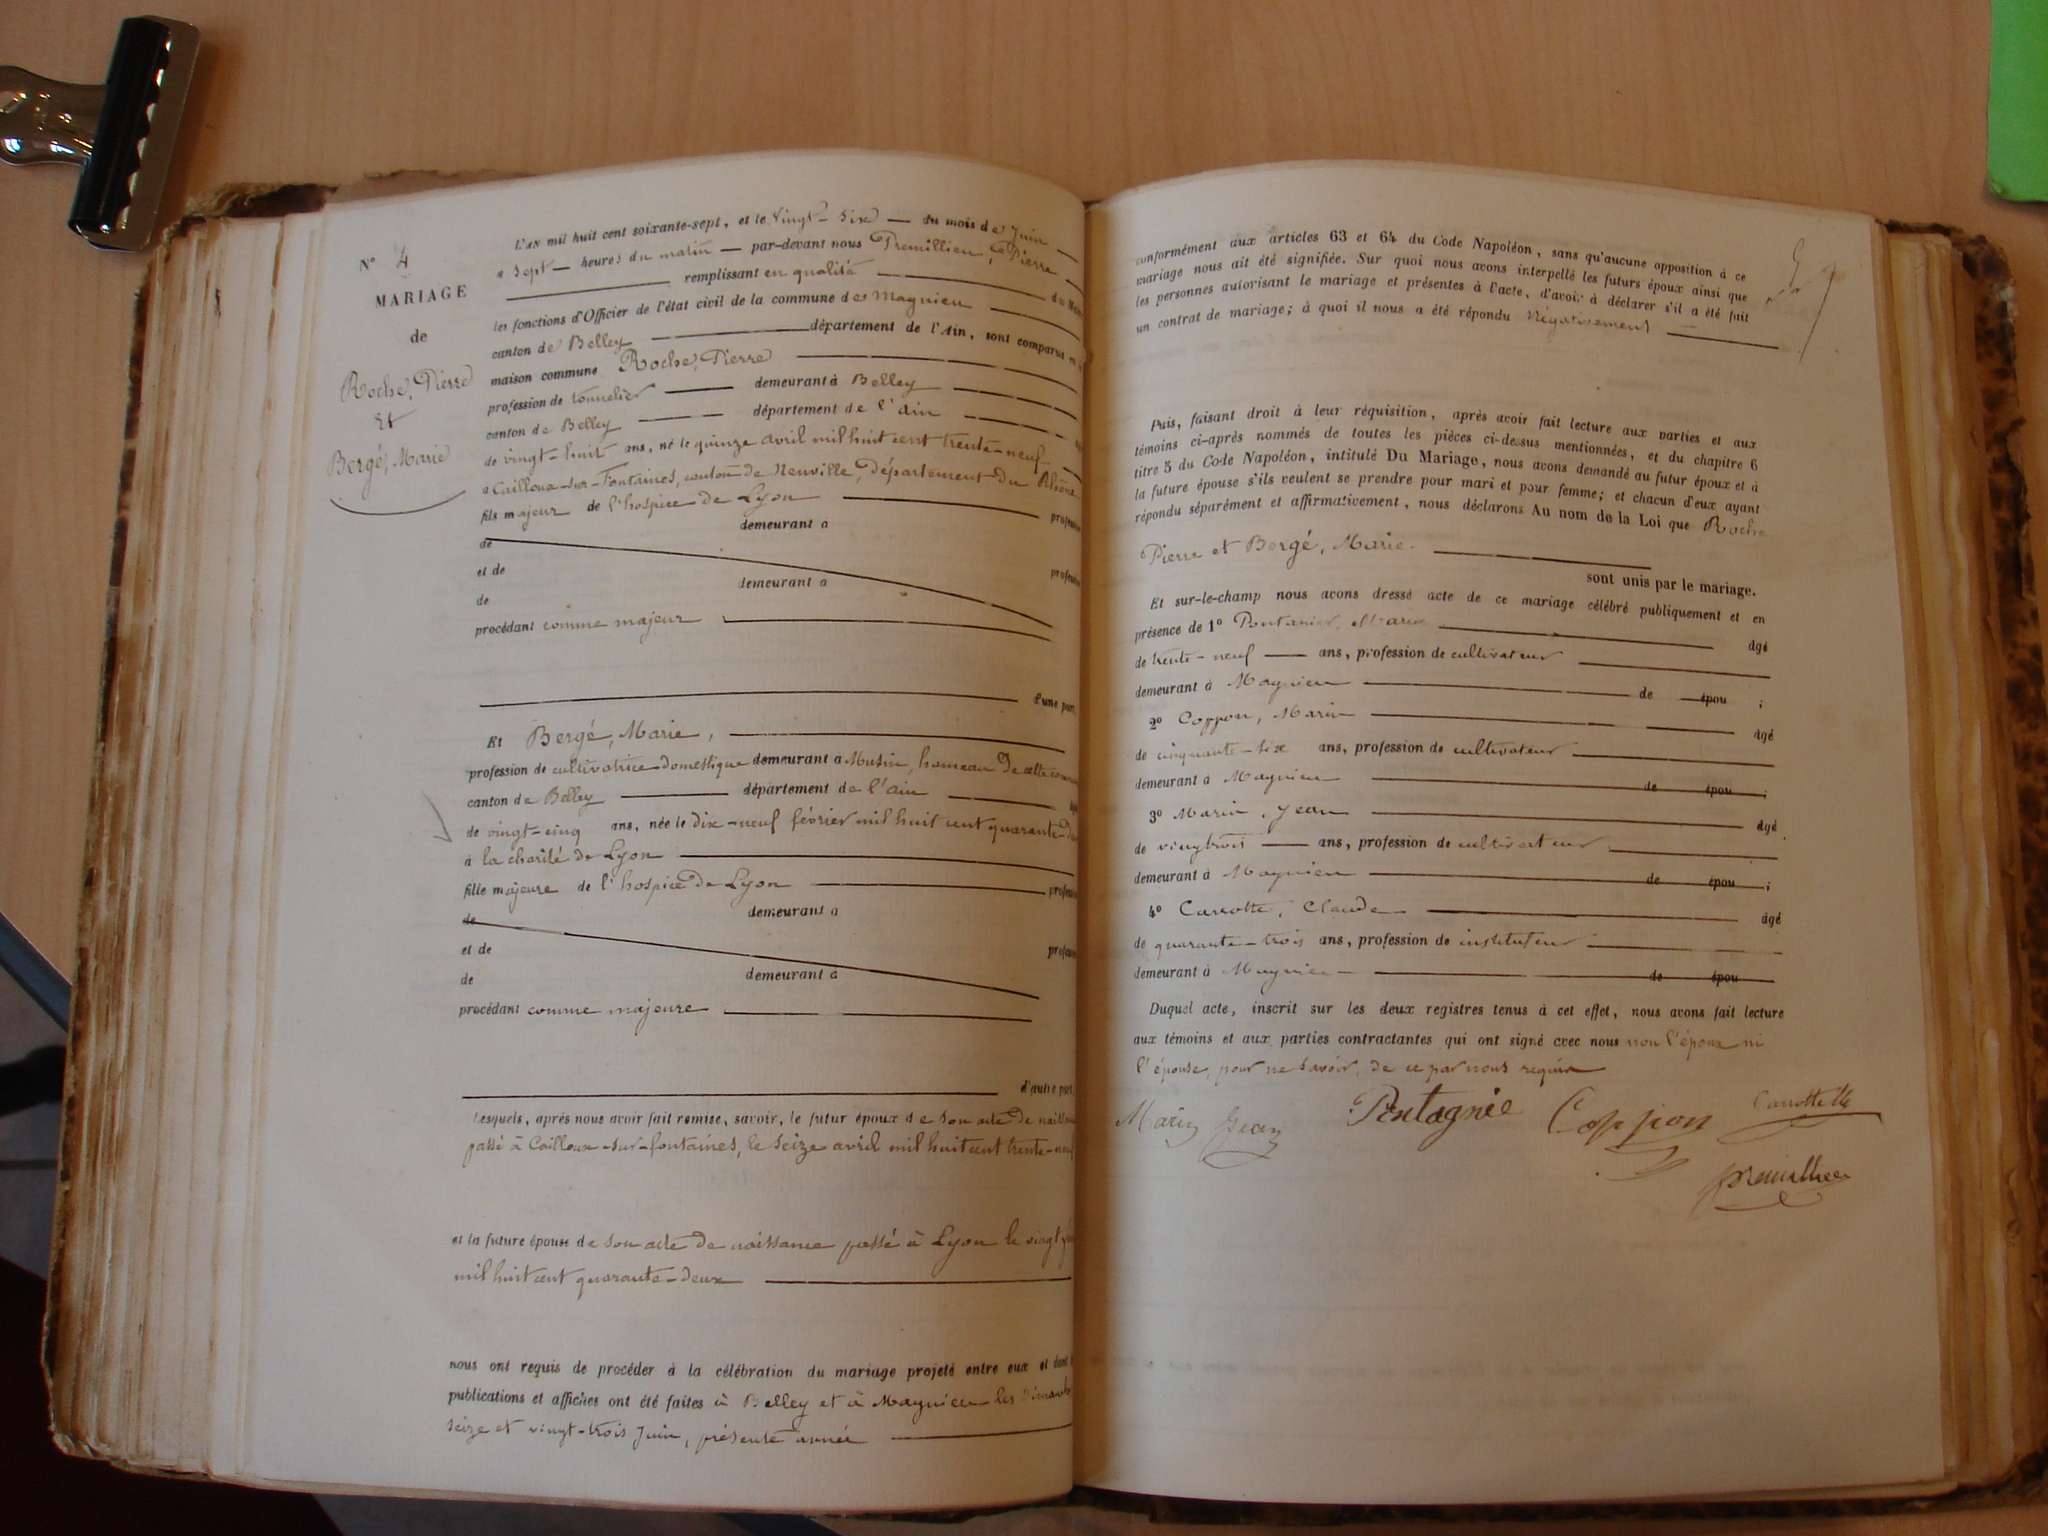 N° 4
MARIAGE
de
Roche, Pierre
et
Bergé, Marie
L'an mil huit cent soixante-sept, et le vingt-six du mois de Juin
à sept heures du matin par-devant nous Premillieu, Pierre
remplissant en qualité du Maire
les fonctions d'Officier de l'état civil de la commune de Magnieu
canton de Belley département de l'Ain, sont comparus en
maison commune Roche, Pierre
profession de tonnelier demeurant à Belley
canton de Belley département de l'Ain
de vingt-huit ans, né le quinze avril mil huit cent trente-neuf
à Cailloux-sur-Fontaines, canton de Neuville, Département du Rhône
fils majeur de l'hospice de Lyon profession
de demeurant à
et de profession
de demeurant à
procédant comme majeur
d'une part,
Et Bergé, Marie,
profession de cultivatrice domestique demeurant à Musin, hameau de cette
canton de Belley département de l'Ain
de vingt-cinq ans, née le dix-neuf février mil huit cent quarante-
à la charité de Lyon
fille majeure de l'hospice de Lyon profession
de demeurant à
et de profession
de demeurant à
procédant comme majeure
d'autre part,
Lesquels, après nous avoir fait remise, savoir, le futur époux de son acte de
passé à Cailloux-sur-fontaines, le seize avril mil huit cent trente-neuf
et la future épouse de son acte de naissance passé à Lyon le vingt
mil huit cent quarante-deux
nous ont requis de procéder à la célébration du mariage projeté entre eux et dont
publications et affiches ont été faites à Belley et à Magnieu les
seize et vingt-trois Juin, présente année
conformément aux articles 63 et 64 du Code Napoléon, sans qu'aucune opposition à ce
mariage nous ait été signifiée. Sur quoi nous avons interpellé les futurs époux ainsi que
les personnes autorisant le mariage et présentes à l'acte, d'avoir à déclarer s'il a été fait
un contrat de mariage; à quoi il nous a été répondu Négativement
Puis, faisant droit à leur réquisition, après avoir fait lecture aux parties et aux
témoins ci-après nommés de toutes les pièces ci-dessus mentionnées, et du chapitre 6
titre 5 du Code Napoléon, intitulé Du Mariage, nous avons demandé au futur époux et à
la future épouse s'ils veulent se prendre pour mari et pour femme; et chacun d'eux ayant
répondu séparément et affirmativement, nous déclarons Au nom de la Loi que Roche
Pierre et Bergé, Marie.
sont unis par le mariage.
Et sur-le-champ nous avons dressé acte de ce mariage célébré publiquement et en
présence de 1° âgé
de trente-neuf ans, profession de cultivateur
demeurant à Magnieu de épou ;
2° Coppon, Marin âgé
de cinquante-six ans, profession de cultivateur
demeurant à Magnieu de épou ;
3° Marin, Jean âgé
de vingtrois ans, profession de cultivateur
demeurant à Magnieu de épou ;
4° Carrotte, Claude âgé
de quarante-trois ans, profession de instituteur
demeurant à Magnieu de épou
Duquel acte, inscrit sur les deux registres tenus à cet effet, nous avons fait lecture
aux témoins et aux parties contractantes qui ont signé avec nous non l'époux ni
l'épouse, pour ne savoir, de ce par nous requis
Marin Jean Pentagnié Coppon Carrotte
Premillieu